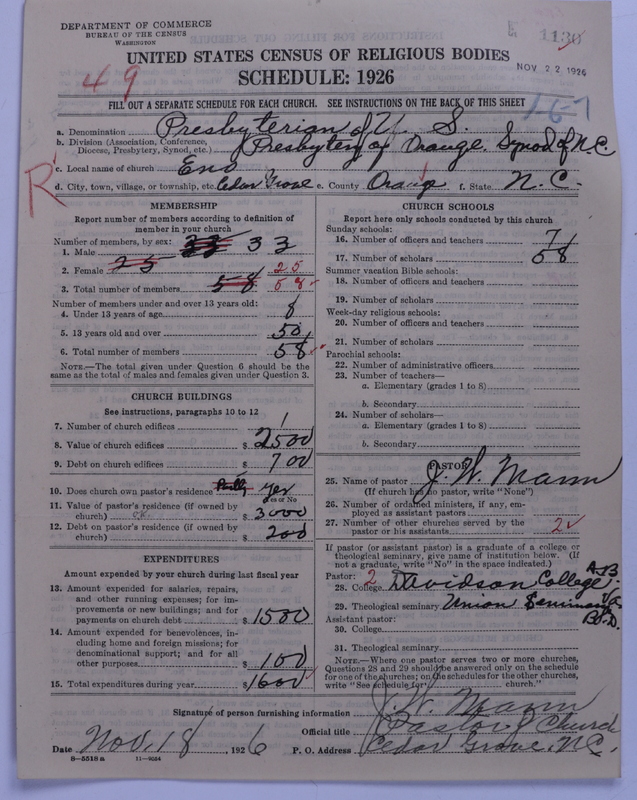 DEPARTMENT OF COMMERCE
BUREAU OF THE CENSUS
WASHINGTON
1130
NOV 22 1926
UNITED STATES CENSUS OF RELIGIOUS BODIES
SCHEDULE: 1926
49
FILL OUT A SEPARATE SCHEDULE FOR EACH CHURCH. SEE INSTRUCTIONS ON THE BACK OF THIS SHEET
16-7
a. Denomination Presbyterian of U. S.
b. Division (Association, Conference, Diocese, Presbytery, Synod, etc.) Presbytery of Orange. Synod of N.C.
c. Local name of church Eno
R
d. City, town, village, or township, etc. Cedar Grove e. County Orange f. State N.C.
MEMBERSHIP
Report number of members according to definition of
member in your church
Number of members, by sex:
1. Male 33
2. Female 25 25
3. Total number of members 58 58
Number of members under and over 13 years old:
4. Under 13 years of age 8
5. 13 years old and over 50
6. Total number of members 58
NOTE.—The total given under Question 6 should be the
same as the total of males and females given under Question 3.
CHURCH BUILDINGS
See instructions, paragraphs 10 to 12
7. Number of church edifices 1
8. Value of church edifices $ 2500
9. Debt on church edifices $ 700
10. Does church own pastor's residence Partly Yes
Yes or No
11. Value of pastor's residence (if owned by
church) $ 3000
12. Debt on pastor's residence (if owned by
church) $ 200
EXPENDITURES
Amount expended by your church during last fiscal year
13. Amount expended for salaries, repairs,
and other running expenses; for im-
provements or new buildings; and for
payments on church debt $ 1500
14. Amount expended for benevolences, in-
cluding home and foreign missions; for
denominational support; and for all
other purposes $ 100
15. Total expenditures during year $ 1600
CHURCH SCHOOLS
Report here only schools conducted by this church
Sunday schools:
16. Number of officers and teachers 7
17. Number of scholars 58
Summer vacation Bible schools:
18. Number of officers and teachers
19. Number of scholars
Week-day religious schools:
20. Number of officers and teachers
21. Number of scholars
Parochial schools:
22. Number of administrative officers
23. Number of teachers—
a. Elementary (grades 1 to 8)
b. Secondary
24. Number of scholars—
a. Elementary (grades 1 to 8)
b. Secondary
PASTOR
25. Name of pastor J. W. Mann
(If church has no pastor, write "None")
26. Number of ordained ministers, if any, em-
ployed as assistant pastors
27. Number of other churches served by the
pastor or his assistants 2
If pastor (or assistant pastor) is a graduate of a college or
theological seminary, give name of institution below. (If
not a graduate, write "No" in the space indicated.)
Pastor: 2
28. College Davidson College. A.B
29. Theological seminary Union Seminary Va. B.D.
Assistant pastor:
30. College
31. Theological seminary
NOTE.—Where one pastor serves two or more churches,
Questions 28 and 29 should be answered only on the schedule
for one of the churches; on the schedules for the other churches,
write "See schedule for church."
Signature of person furnishing information J. W. Mann
Official title Pastor Church
Date Nov. 18, 1926 P. O. Address Cedar Grove, N.C.
8-5518 a 11-9034